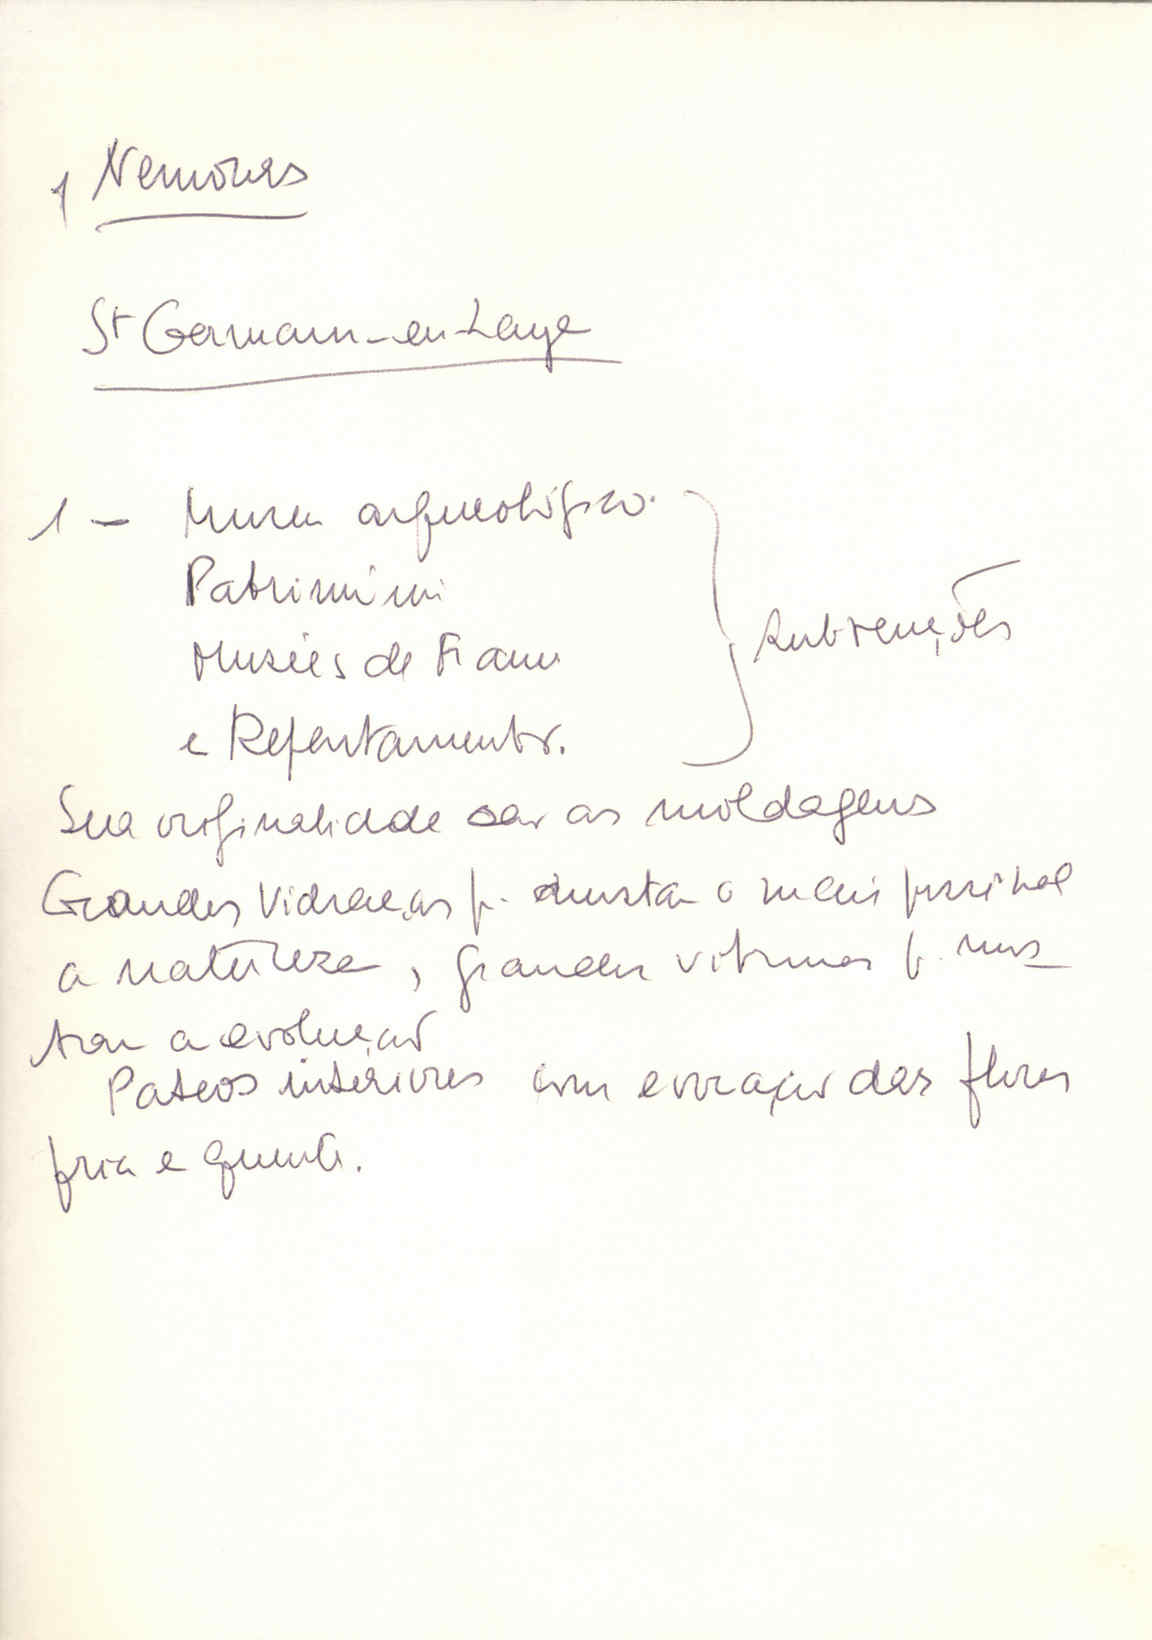 1 Nemours
St Germain-en-Laye
1 - Museu arqueológico.
Patrimóni
Musées de France
e Repartamento.
subvenções
Sua originalidade são as moldagens
Grandes vidraças p. mostrar o mais possivel
a natureza, grandes vitrinas p. mos_
trar a evolução
Pateos interiores com evocação das flores
fria e quente.